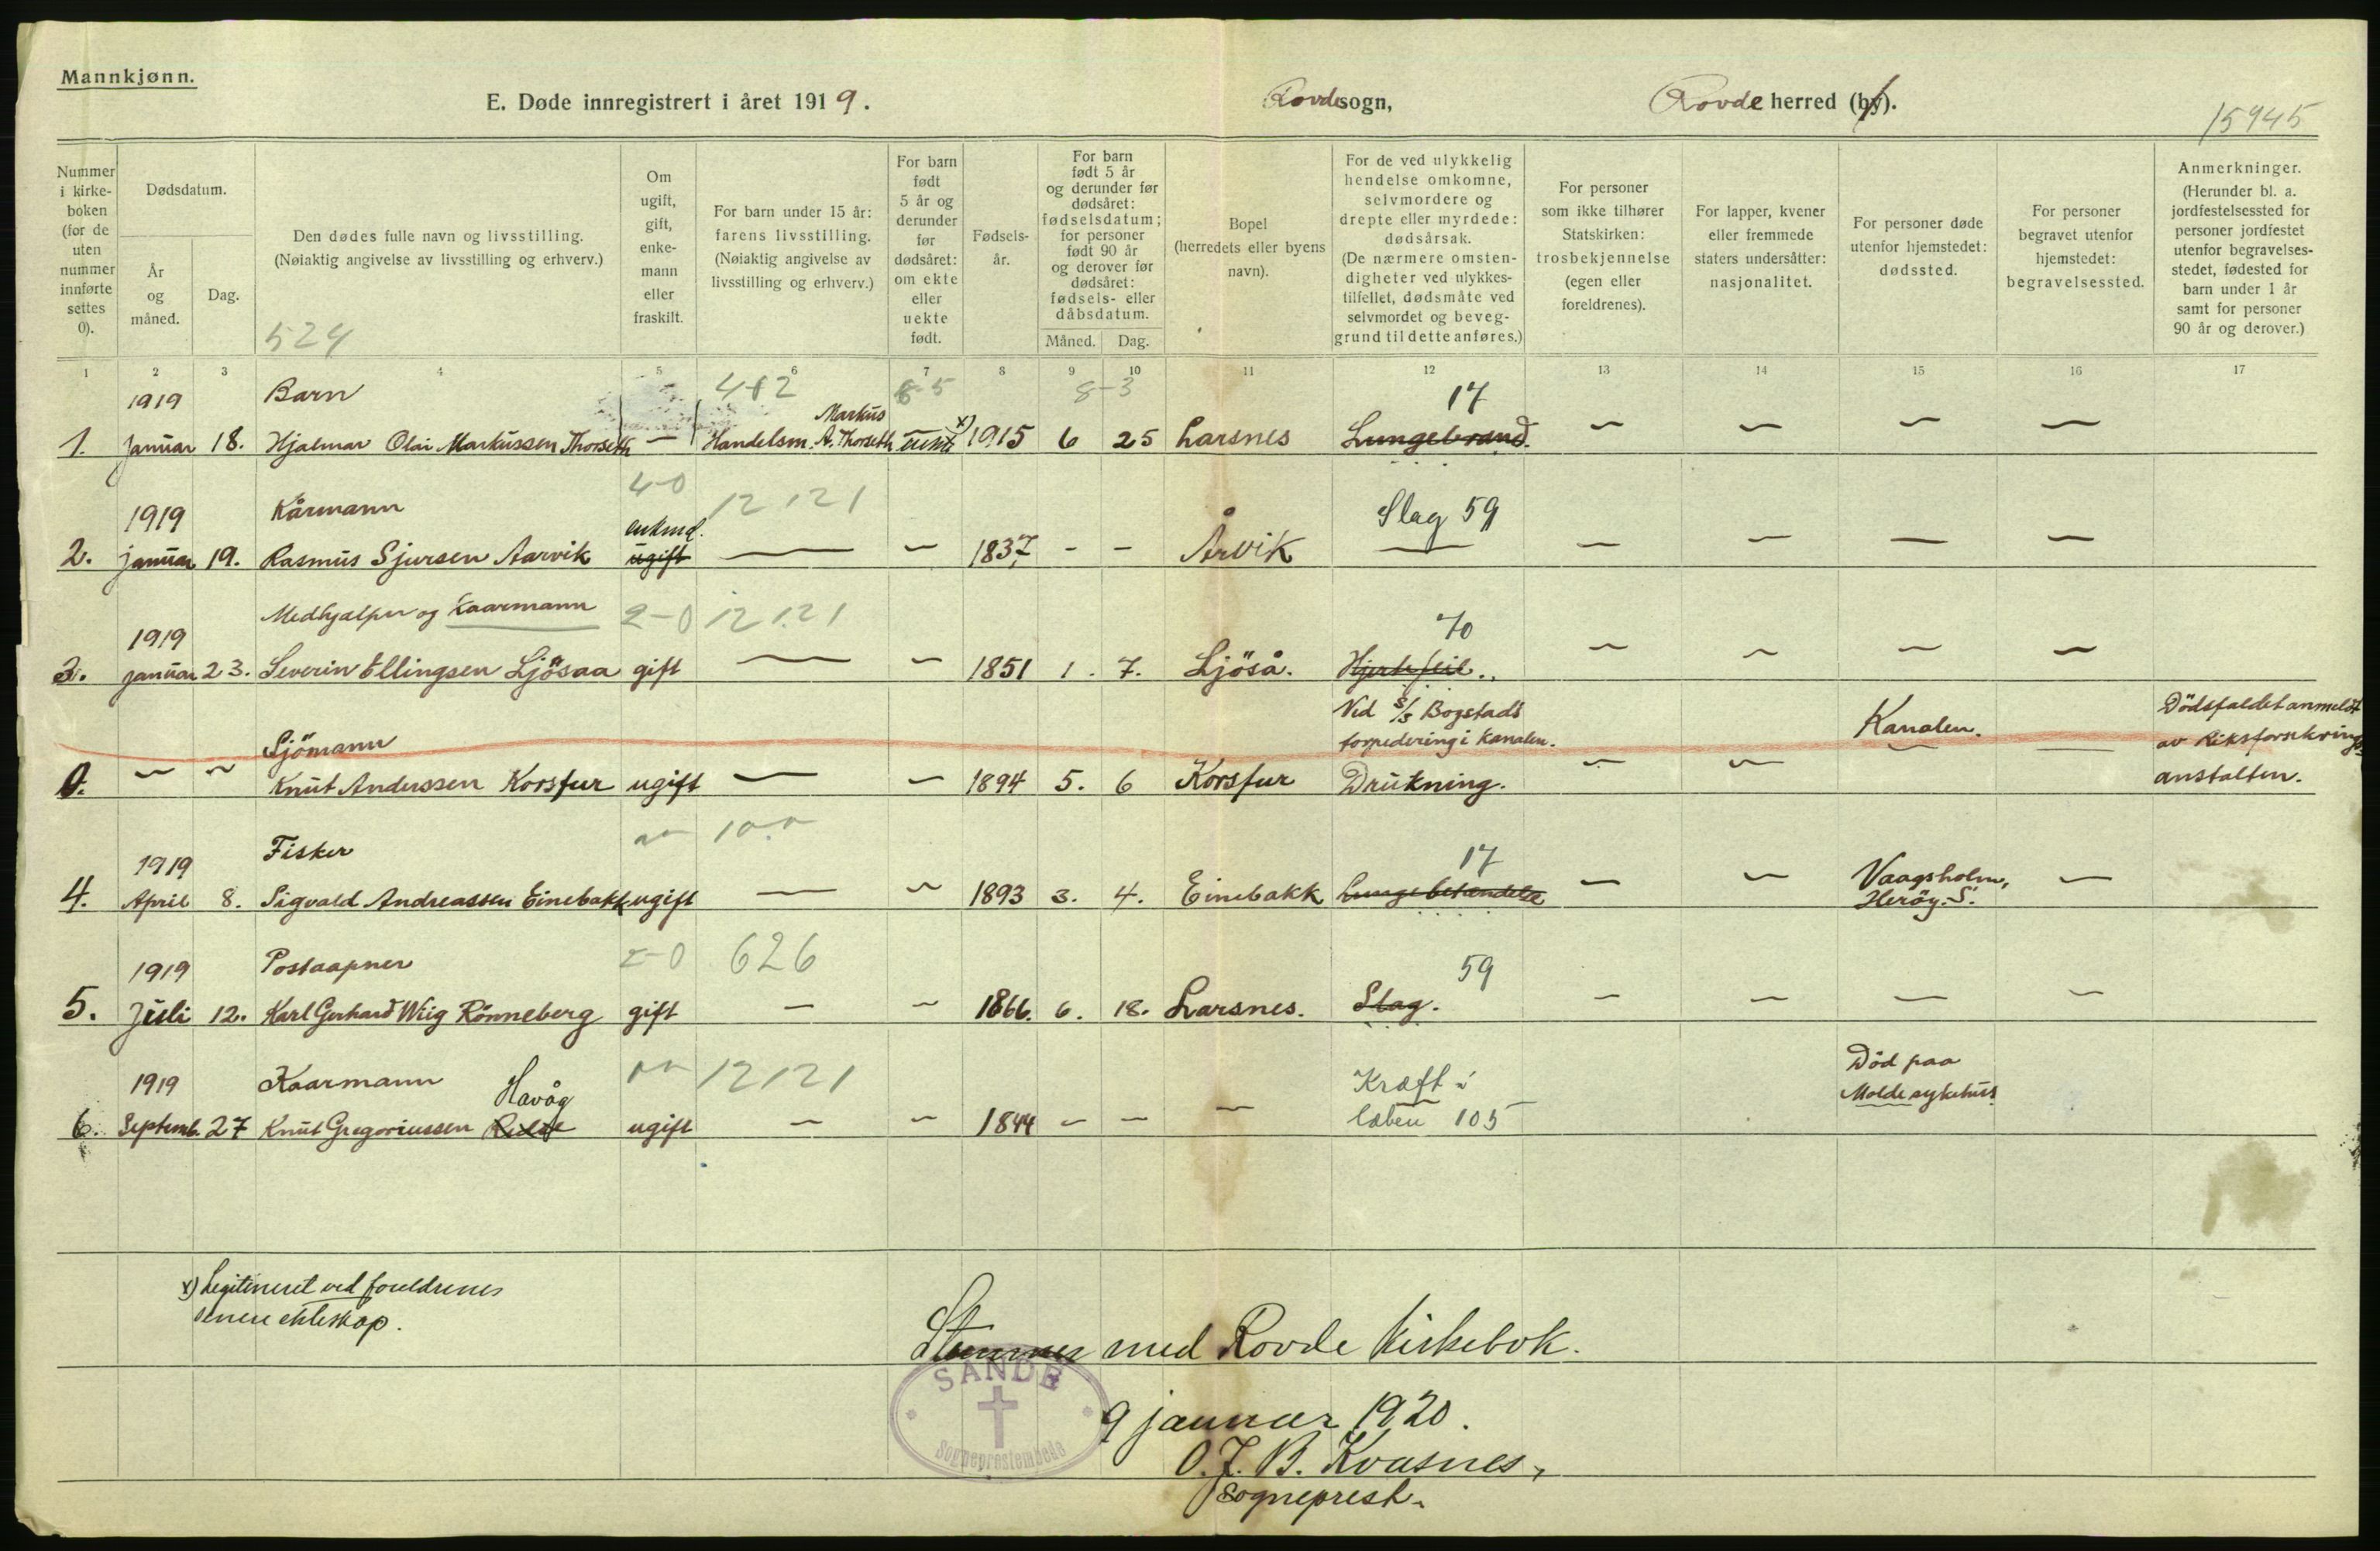 Mannkjønn.
E. Døde innregistrert i året 1919.
Rovde sogn,
Rovde herred (by).
15945
Nummer i kirke-boken (for de uten nummer innførte settes 0).
Dødsdatum.
År og måned.
Dag.
Den dødes fulle navn og livsstilling.
(Nøiaktig angivelse av livsstilling og erhverv.)
524
Om ugift, gift, enke-mann eller fraskilt.
For barn under 15 år: farens livsstilling. (Nøiaktig angivelse av livsstilling og erhverv.)
For barn født 5 år og derunder før dødsåret: om ekte eller uekte født.
Fødsels-år.
For barn født 5 år og derunder før dødsåret: fødselsdatum; for personer født 90 år og derover før dødsåret: fødsels- eller dåbsdatum.
Måned. Dag.
Bopel (herredets eller byens navn).
For de ved ulykkelig hendelse omkomne, selvmordere og drepte eller myrdede: dødsårsak. (De nærmere omsten-digheter ved ulykkes-tilfellet, dødsmåte ved selvmordet og beveg-grund til dette anføres.)
For personer som ikke tilhører Statskirken: trosbekjennelse (egen eller foreldrenes).
For lapper, kvener eller fremmede staters undersåtter: nasjonalitet.
For personer døde utenfor hjemstedet: dødssted.
For personer begravet utenfor hjemstedet: begravelsessted.
Anmerkninger. (Herunder bl. a. jordfestelsessted for personer jordfestet utenfor begravelses-stedet, fødested for barn under 1 år samt for personer 90 år og derover.)
1 2 3 4 5 6 7 8 9 10 11 12 13 14 15 16 17
1919 Barn 8-5 8-3 17
Markus
1. Januar 18. Hjalmar Olai Markussen Thorseth — Handelsm. A. Thorseth uekte x) 1915 6 25 Larsnes Lungebrand. — — — —
4-0 12121
1919 Kårmann enkmd. Slag 59
2. januar 19. Rasmus Sjursen Aarvik ugift — — 1837 - - Årvik — — — — —
Medhjælper og Kaarmann 2-0 12121
1919 70
3. januar 23. Severin Ellingsen Ljösaa gift — — 1851 1. 7. Ljöså. Hjertefeil. — — — —
Ved S/S Bogstads Dödsfaldet anmeldt
Sjömann torpedering i Kanalen. Kanalen. av Riksforsikrings-
0. — — Knut Anderssen Korsfur ugift — — 1894 5. 6 Korsfur Drukning. — — — — anstalten.
1919 Fisker 17 Vaagsholm,
4. April 8. Sigvald Andreassen Einebakk ugift — — 1893 3. 4. Einebakk Lungebetændelse — — Heröy. S. —
2-0 626
1919 Postaapner 59
5. Juli 12. Karl Gerhard Wiig Rönneberg gift — — 1866. 6. 18. Larsnes. Slag. — — — —
12121 Død paa
1919 Kaarmann Havåg Kræft i Molde sykehus.
6. Septemb. 27 Knut Gregoriussen ugift — — 1844 — — — læben 105
x) Legitimeret ved foreldrenes
senere ekteskap.
Stemmer med Rovde Kirkebok.
SANDE
Sogneprestembede
9 januar 1920.
O. J. B. Kvasnes,
Sogneprest.